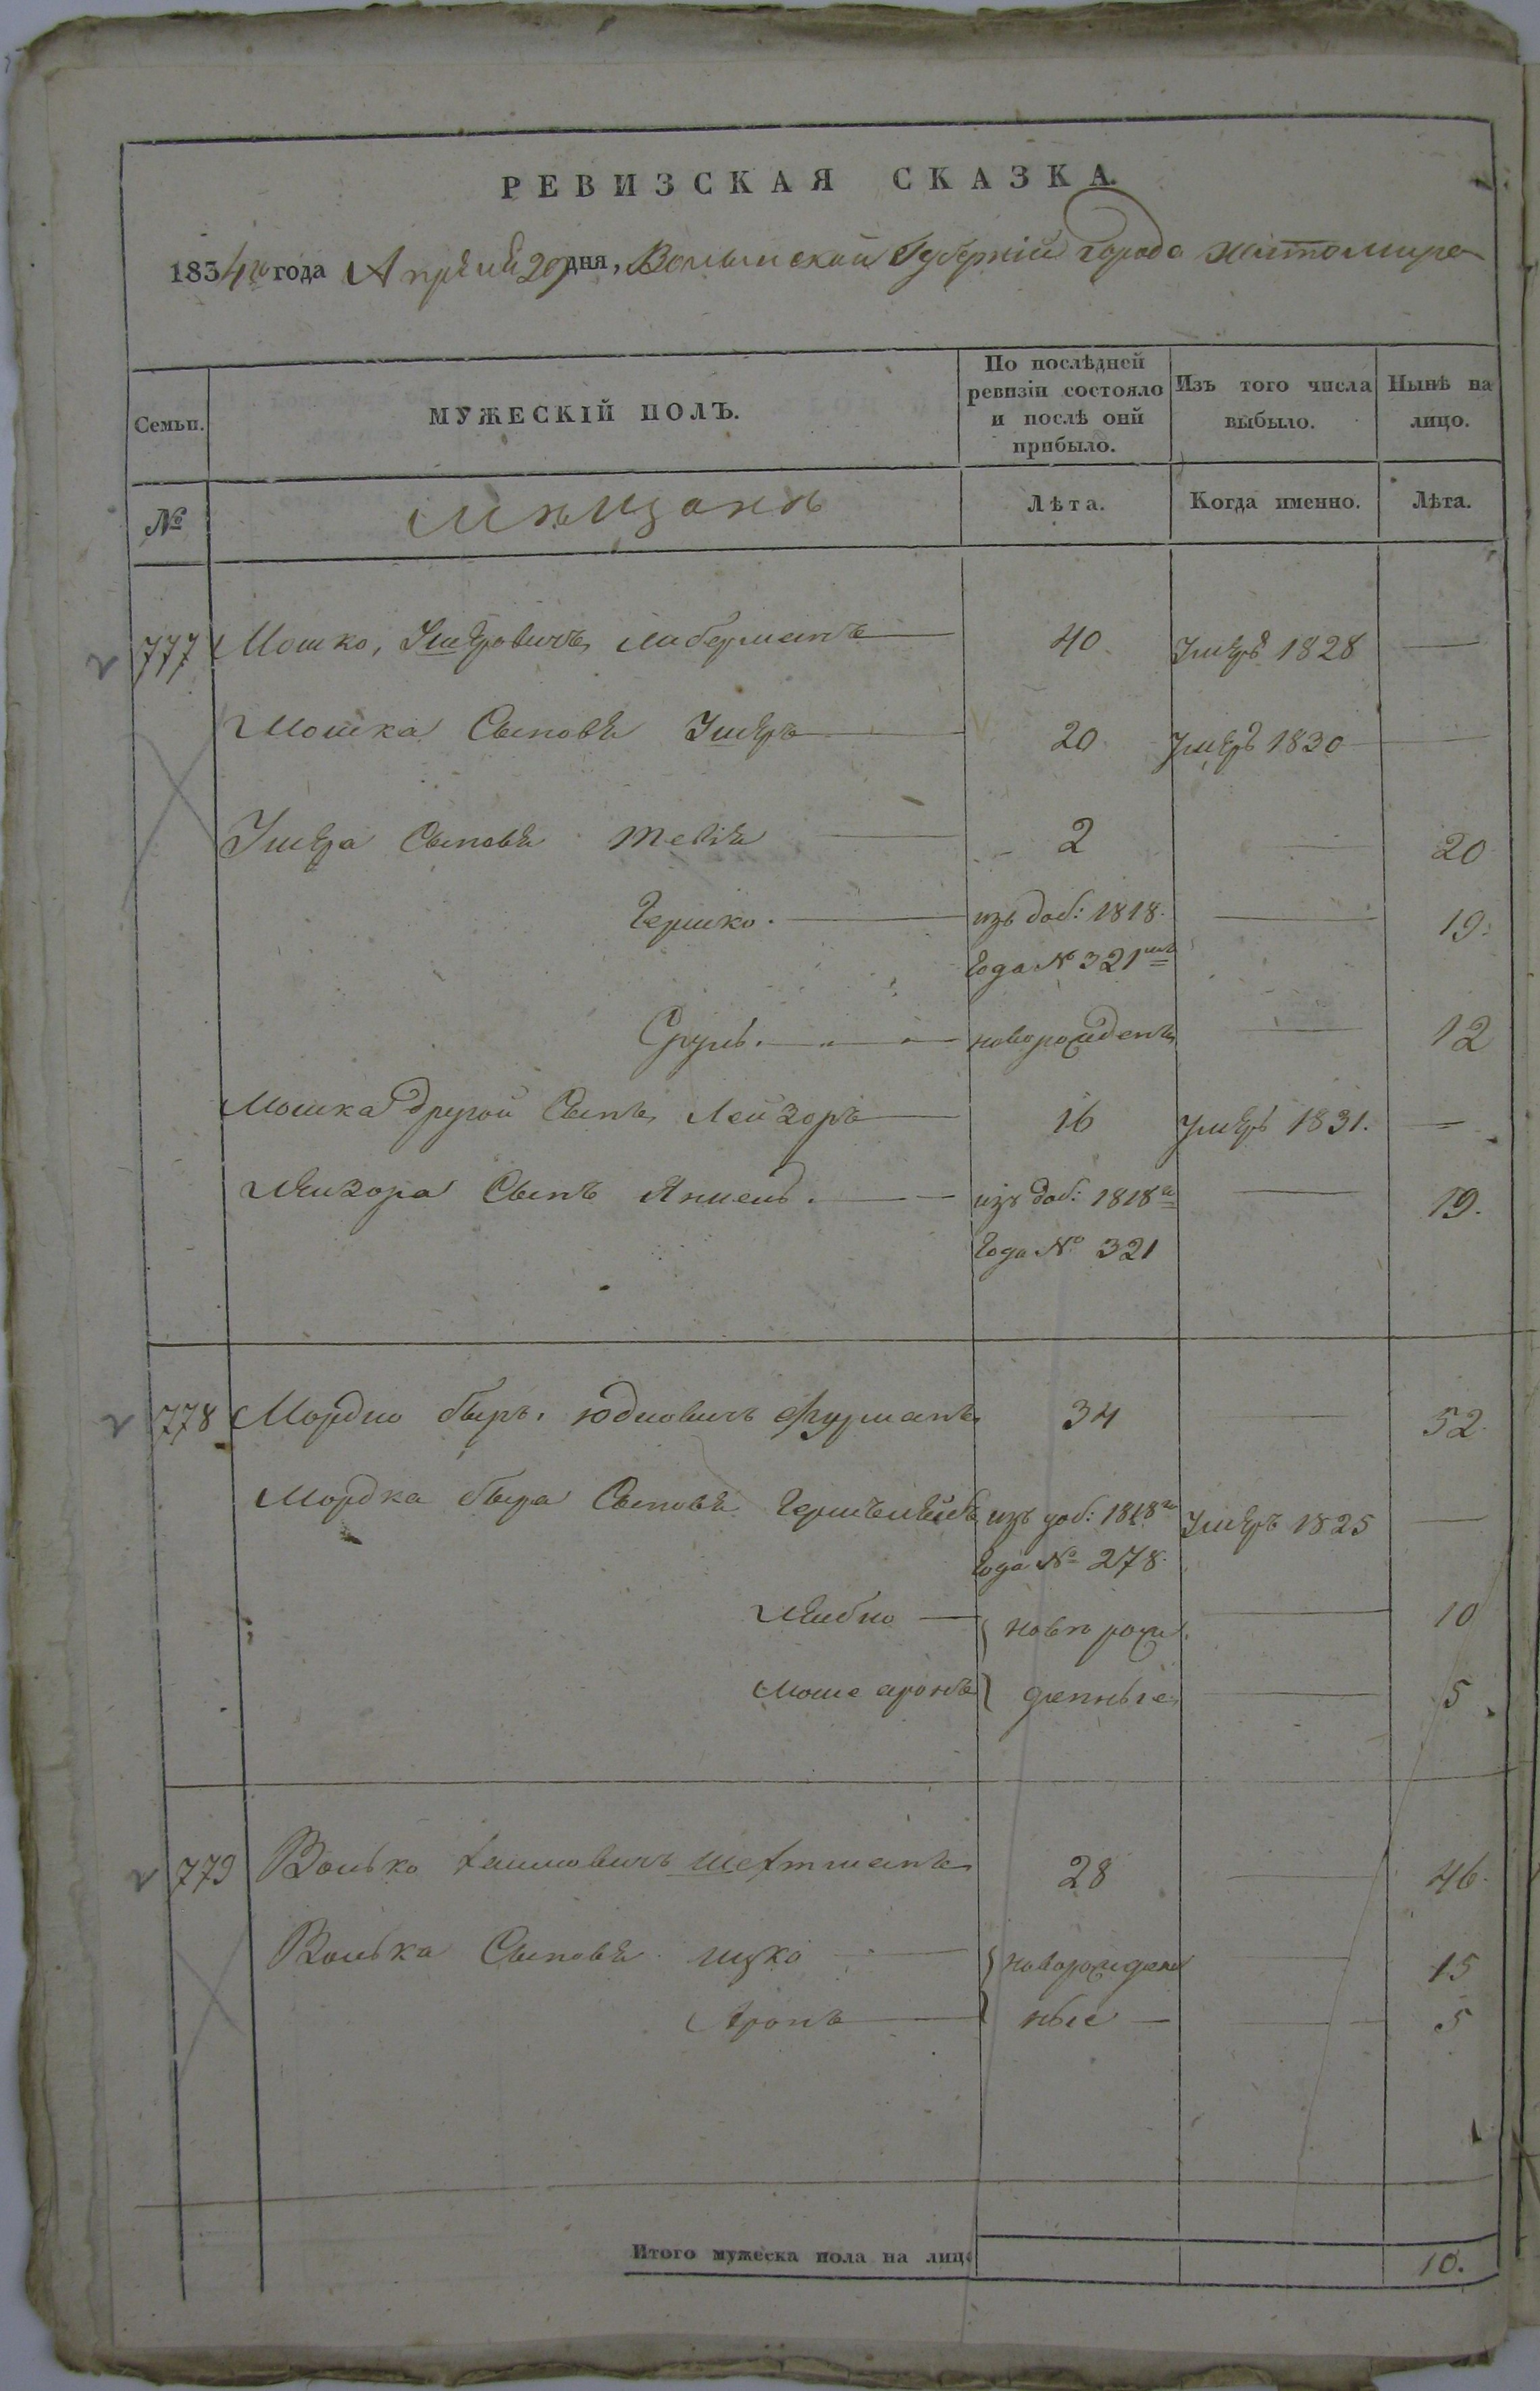 РЕВИЗСКАЯ СКАЗКА.
1834го года Апрѣля 20 дня, Волынской Губерніи города Житомира
Семьи. МУЖЕСКІЙ ПОЛЪ. По послѣдней ревизіи состояло и послѣ оній прибыло. Изъ того числа выбыло. Нынѣ на лицо.
№ Мѣщанъ Лѣта. Когда именно. Лѣта.
777 Мошко, Умѣровичъ Либерманъ 40 умѣръ 1828 —
Мошка Сыновья Умѣръ 20 умѣръ 1830 —
Умѣра Сыновья Тевія 2 — 20
Гершко. изъ доб: 1818. — 19.
Года № 321
Сруль. новорожденъ — 12
Мошка другой Сынъ Лейзоръ 16 умѣръ 1831. —
Лейзора Сынъ Янкель. изъ доб: 1818го — 19.
Года № 321
778 Мордко беръ. Юдковичъ Фурманъ 34 — 52.
Мордка бера Сыновья Гершълейбъ изъ доб: 1818го умѣръ 1825 —
Года № 278.
Лейбко — новорож — 10
Моше аронъ денные — 5
779 Волько Хаимовичъ Шехтманъ 28 — 46.
Волька Сыновья ицко новорожден — 15
Аронъ ные — — 5
Итого мужеска пола на лицо 10.